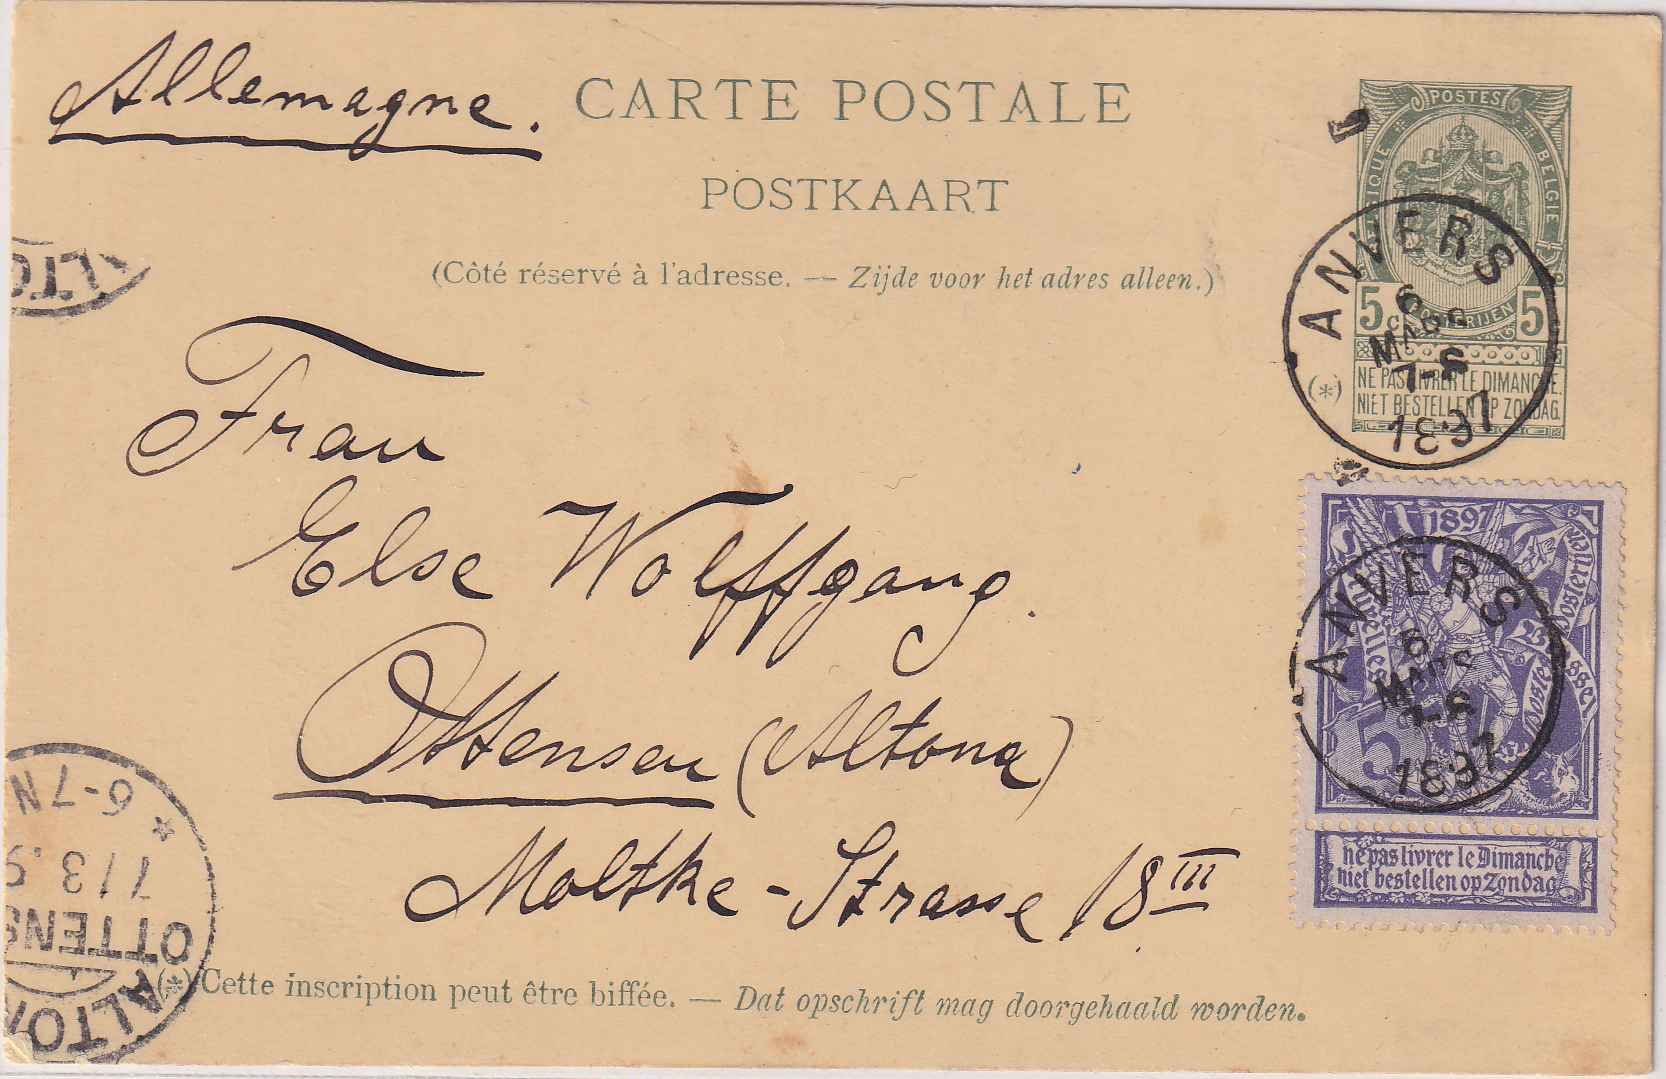 Allemagne.
CARTE POSTALE
POSTKAART
(Côté réservé à l'adresse. — Zijde voor het adres alleen.)
POSTES
BELGIE
5 c 5
NE PAS LIVRER LE DIMANCHE.
(*)
NIET BESTELLEN OP ZONDAG.
ANVERS
6
MARS
7-8
1897
Frau
Else Wolffgang.
Ottensen (Altona)
Moltke-Strasse 18 III
1897
5
ANVERS
6
MARS
1897
ne pas livrer le Dimanche
niet bestellen op Zondag
6-7N
7/3.9
OTTENS
ALTO
(*) Cette inscription peut être biffée. — Dat opschrift mag doorgehaald worden.